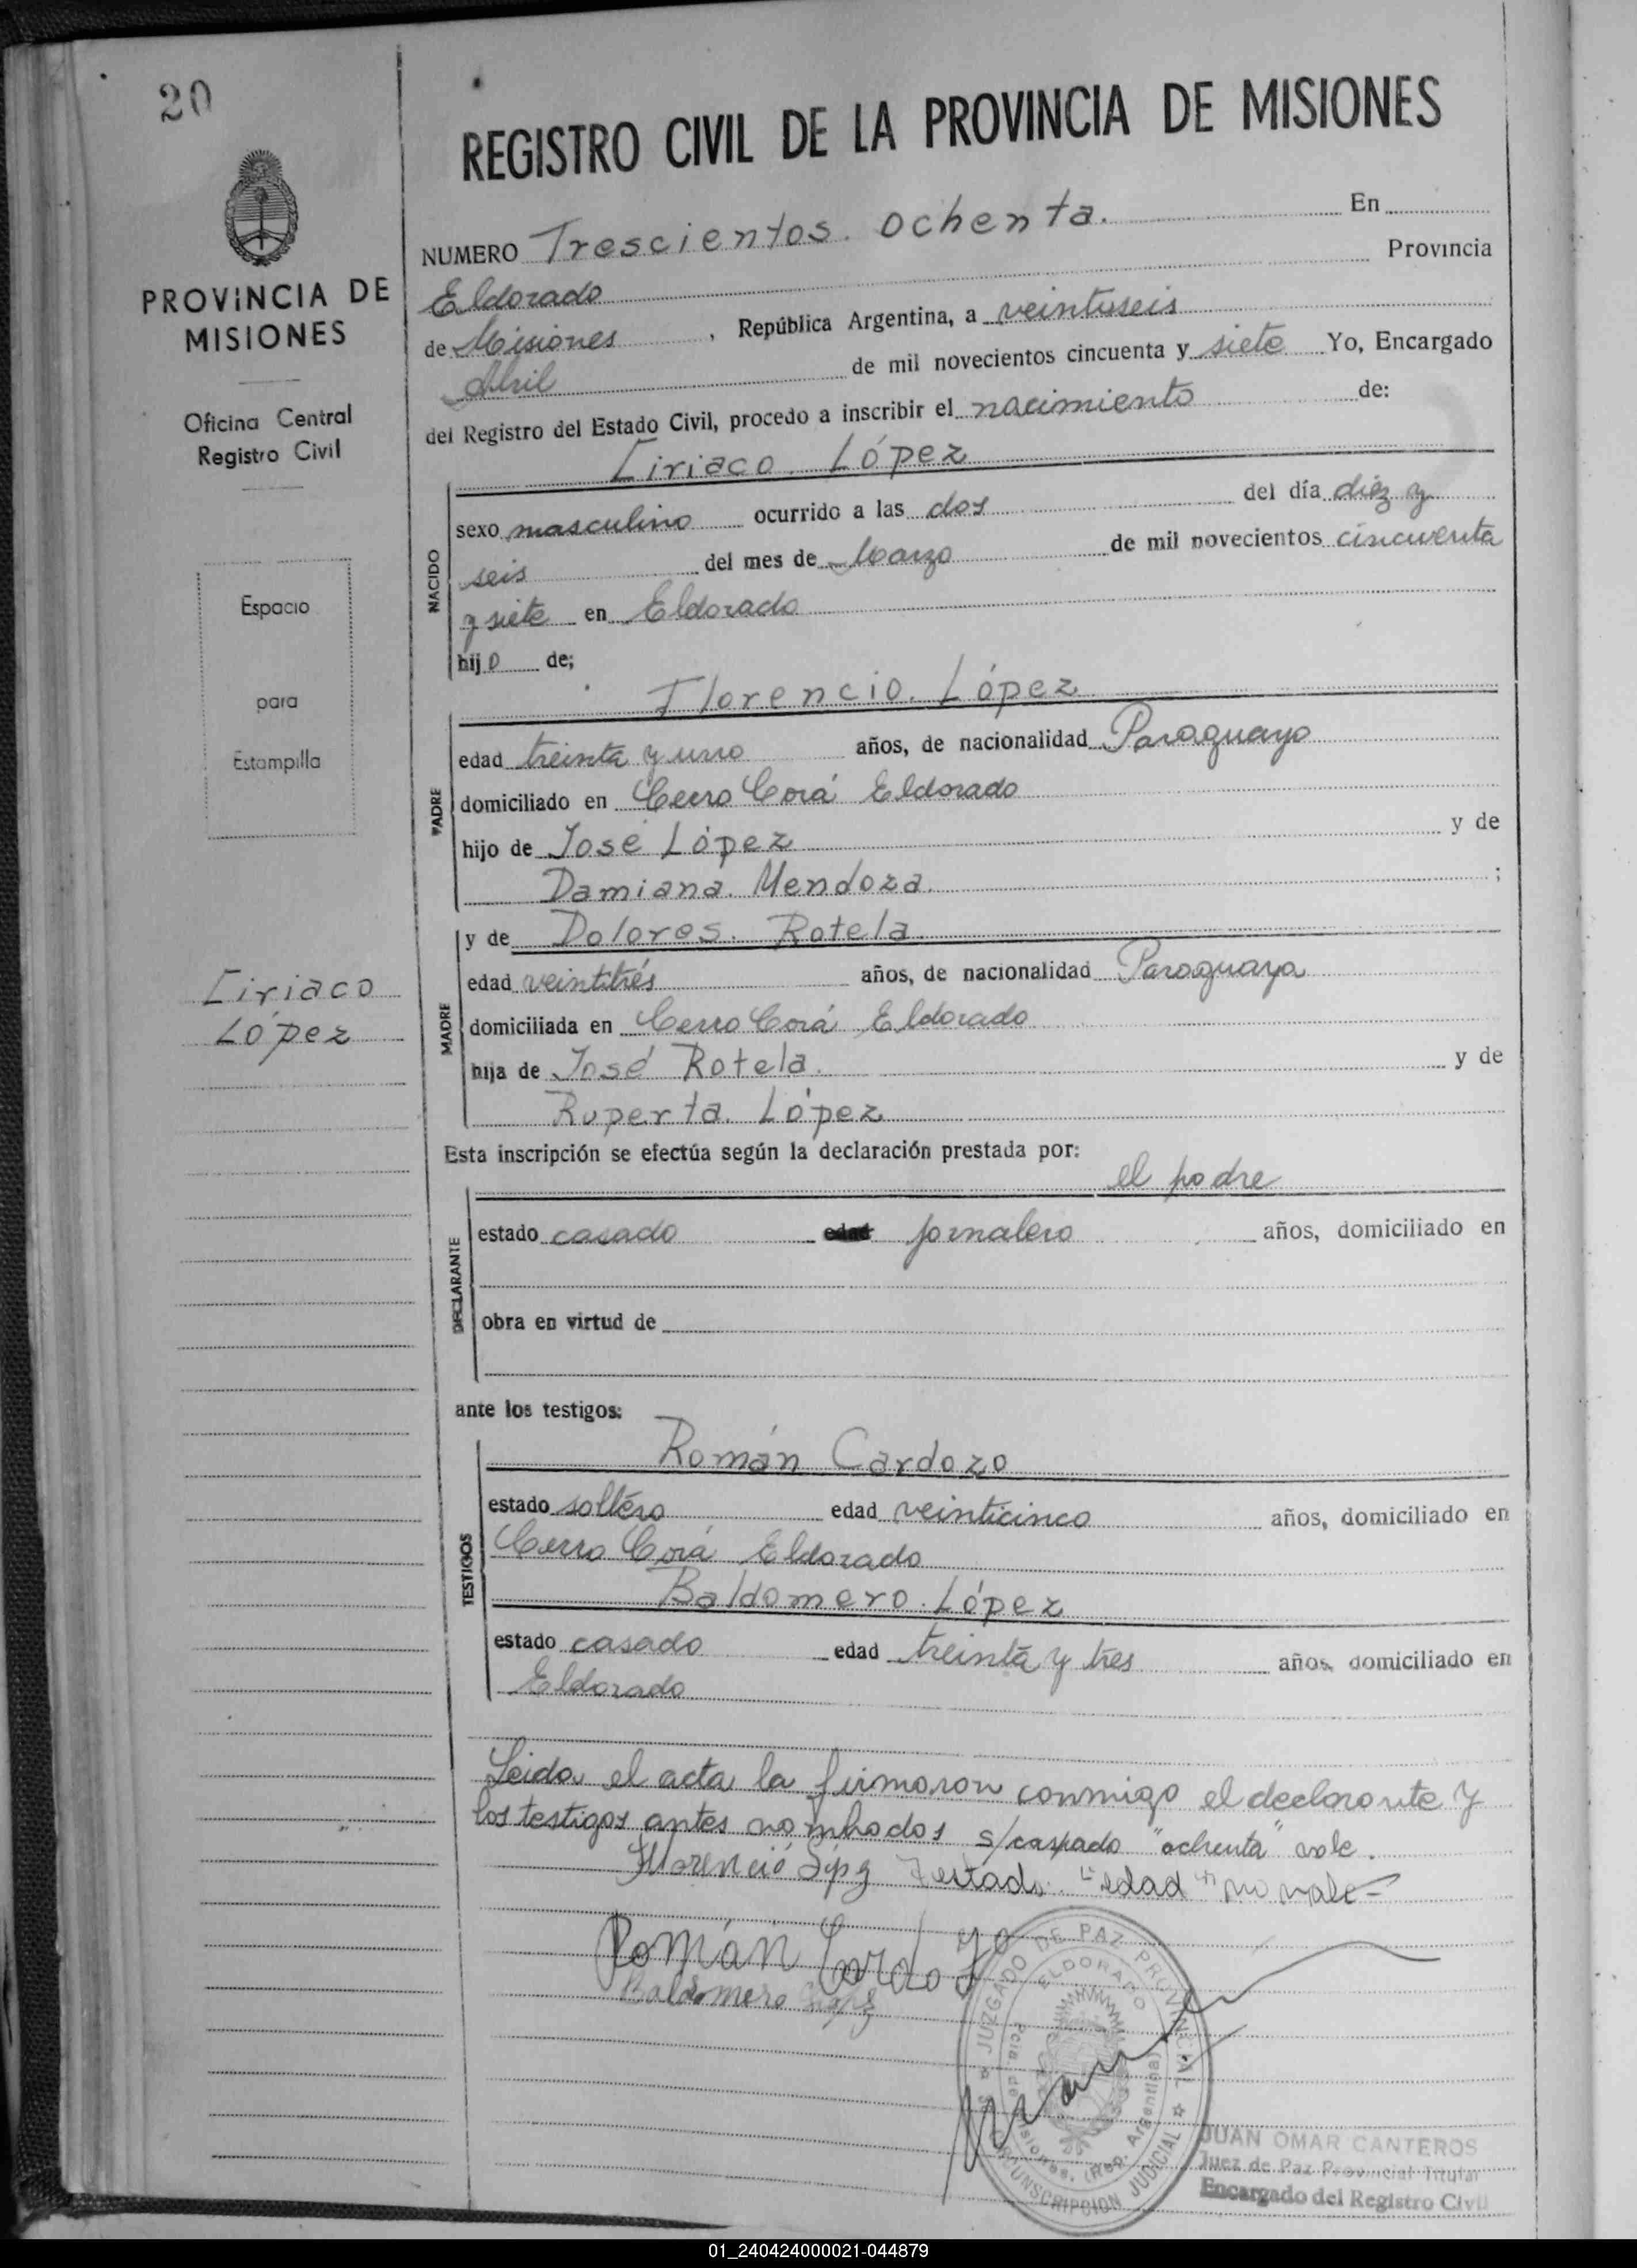 20
REGISTRO CIVIL DE LA PROVINCIA DE MISIONES
PROVINCIA DE
MISIONES
Oficina Central
Registro Civil
Espacio
para
Estampilla
Ciriaco
López
NUMERO Trescientos. ochenta. En
Eldorado Provincia
de Misiones, República Argentina, a veintiseis
Abril de mil novecientos cincuenta y siete Yo, Encargado
del Registro del Estado Civil, procedo a inscribir el nacimiento de:
Ciriaco. López
NACIDO
sexo masculino ocurrido a las dos del día diéz y
seis del mes de Marzo de mil novecientos cincuenta
y siete en Eldorado
hijo de;
Florencio. López
PADRE
edad treinta y uno años, de nacionalidad Paraguayo
domiciliado en Cerro Corá Eldorado
hijo de José López y de
Damiana. Mendoza. ;
MADRE
y de Dolores. Rotela
edad veintitrés años, de nacionalidad Paraguaya
domiciliada en Cerro Corá Eldorado
hija de José Rotela. y de
Ruperta. López
Esta inscripción se efectúa según la declaración prestada por:
el padre
DECLARANTE
estado casado edad jornalero años, domiciliado en
obra en virtud de
ante los testigos:
Román Cardozo
TESTIGOS
estado soltéro edad veinticinco años, domiciliado en
Cerro Corá Eldorado
Baldomero. López
estado casado edad treinta y tres años, domiciliado en
Eldorado
Leida el acta la firmaron conmigo el declarante y
los testigos antes nombrados s/raspado "ochenta" vale.
Florencio Lópz Testado: "edad" no vale-
Román Cardozo
Baldomero Lopz
JUZGADO DE PAZ PROVINCIAL
ELDORADO
Pcia. de Misiones. (Rep. Argentina)
CIRCUNSCRIPCION JUDICIAL
JUAN OMAR CANTEROS
Juez de Paz Provincial Titular
Encargado del Registro Civil
01_240424000021-044879